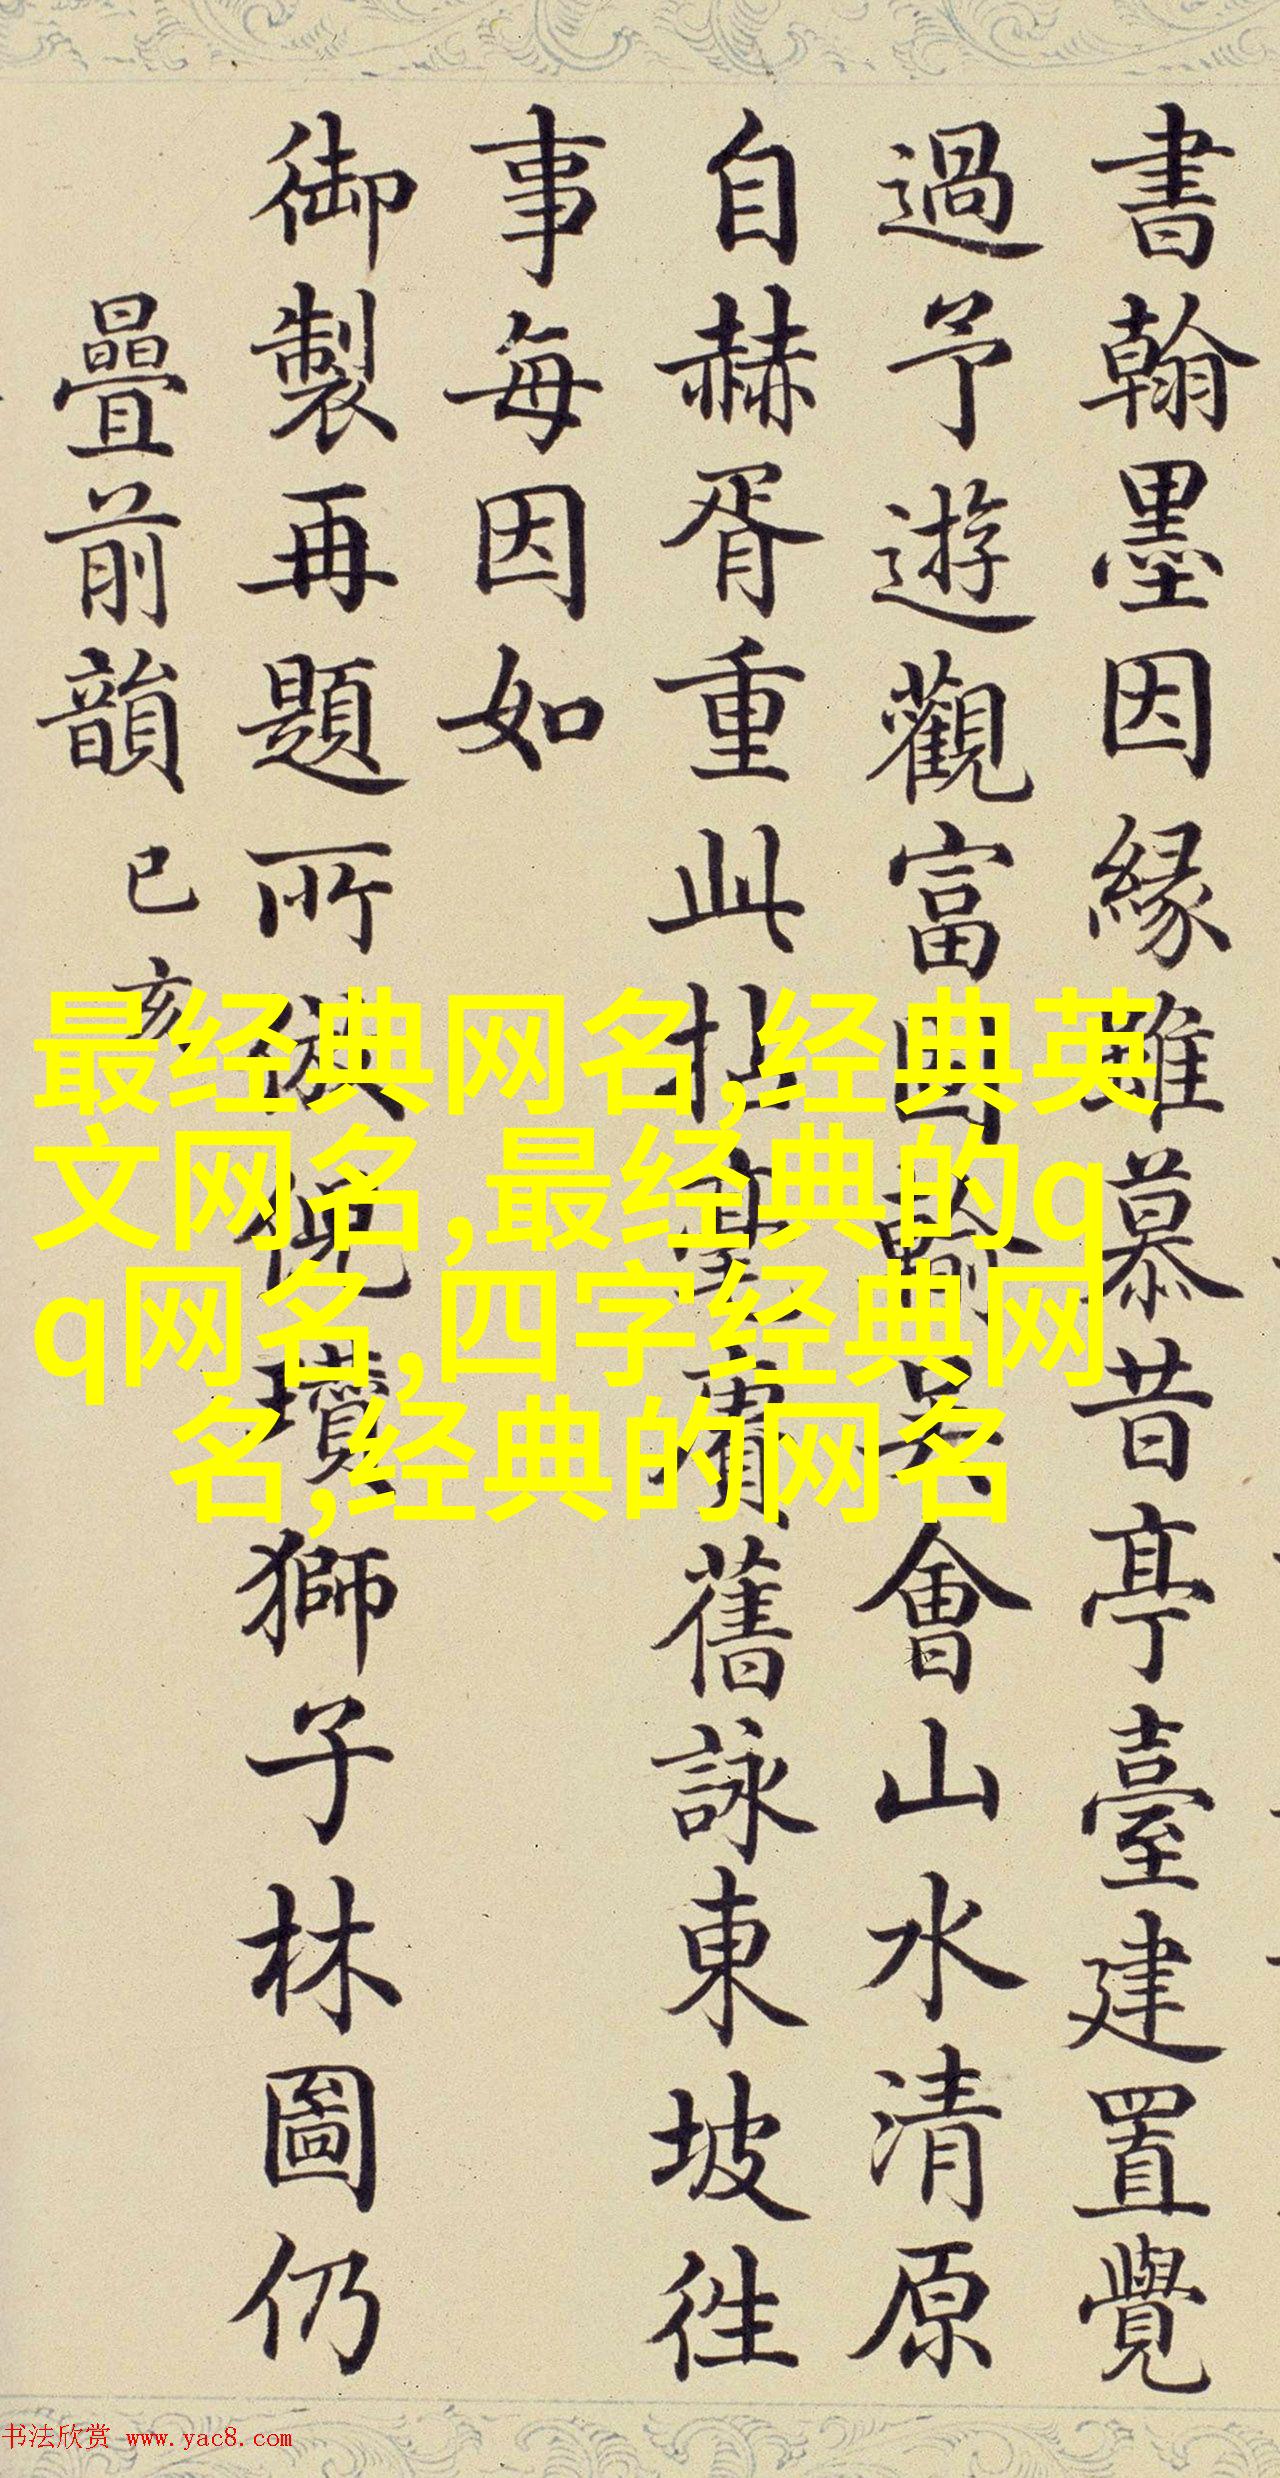 書翰墨因緣雖慕昔亭臺建置覺
過予遊觀富吳會山水清原
自赫胥重此賡舊詠東坡往
事每因如
御製再題所倣倪瓚獅子林圖仍
疊前韻 己亥
最经典网名,经典英
文网名,最经典的q
q网名,四字经典网
名,经典的网名
书法欣赏 www.yac8.com